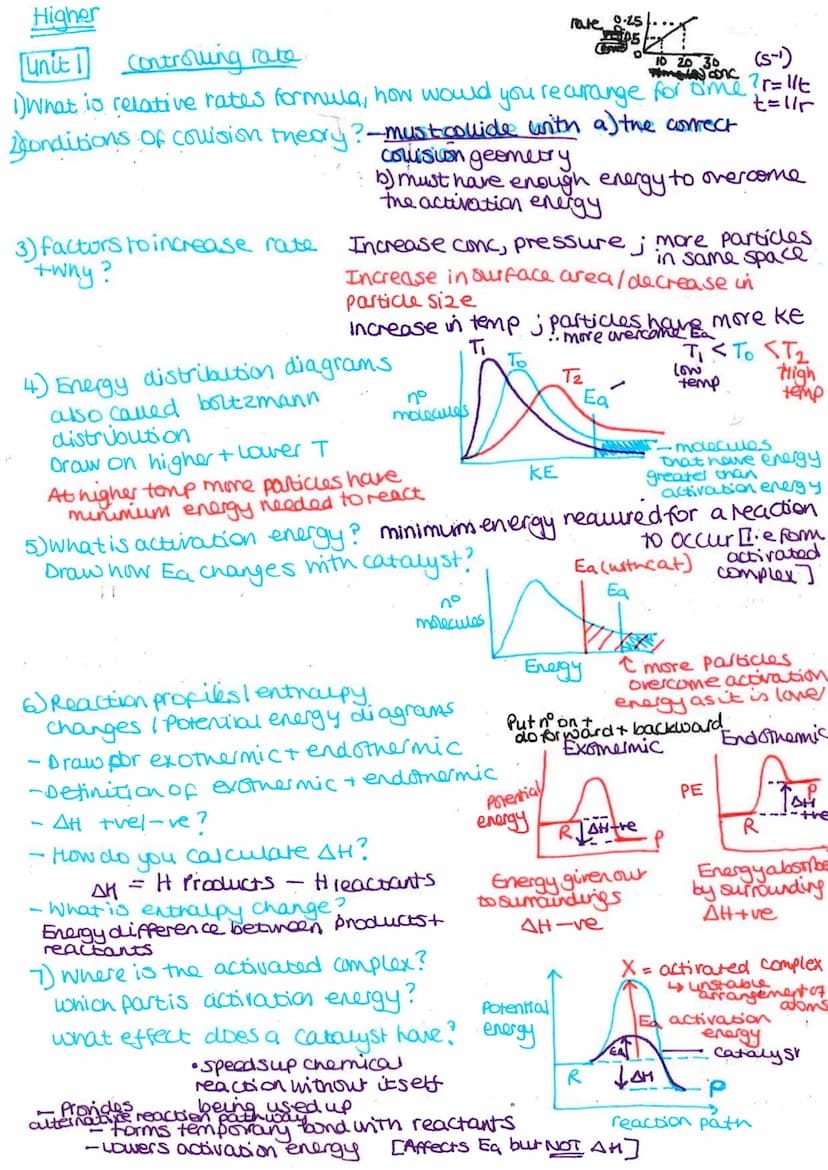 Higher
rate 0.25
0
10 20 30
conc
(s⁻¹)
Unit 1 controlling rate
1) What is relative rates formula, how would you rearrange for time? r=1/t
t=1/r
2) Conditions of collision theory? – must collide with a) the correct
collision geometry
b) must have enough energy to overcome
the activation energy
3) factors to increase rate
+ why?
Increase conc, pressure ; more particles
in same space
Increase in surface area/decrease in
particle size
Increase in temp ; particles have more KE
∴ more overcome Ea
4) Energy distribution diagrams
also called boltzmann
distribution
Draw on higher + lower T
At higher temp more particles have
minimum energy needed to react
T₁ T₀ T₂ Ea
nº
molecules
KE
T₁ < T₀ < T₂
low
temp
High
temp
– molecules
that have energy
greater than
activation energy
5) What is activation energy? minimum energy required for a reaction
to occur [I.e form
activated
complex]
Draw how Ea changes with catalyst?
Ea (with cat)
Ea
nº
molecules
Energy
↑ more particles
overcome activation
energy as it is lower
6) Reaction profiles / enthalpy
changes / Potential energy diagrams
- Draw for exothermic + endothermic
- Definition of exothermic + endothermic
- ΔH +ve/-ve?
- How do you calculate ΔH?
ΔH = H Products – H reactants
- What is enthalpy change?
Energy difference between products +
reactants
Put nº on +
do forward + backward
Exothermic
Potential
energy
R ΔH-ve P
Energy given out
to surroundings
ΔH -ve
Endothermic
PE
R ΔH +ve P
Energy absorbe
by surrounding
ΔH +ve
7) Where is the activated complex?
which part is activation energy?
what effect does a catalyst have?
• speeds up chemical
reaction without itself
being used up
– Provides
alternative reaction pathway
– forms temporary bond with reactants
– Lowers activation energy [Affects Ea but NOT ΔH]
X = activated complex
↳ unstable
arrangement of
atoms
Potential
energy
Ea activation
energy
Ea
catalyst
R ΔH P
reaction path